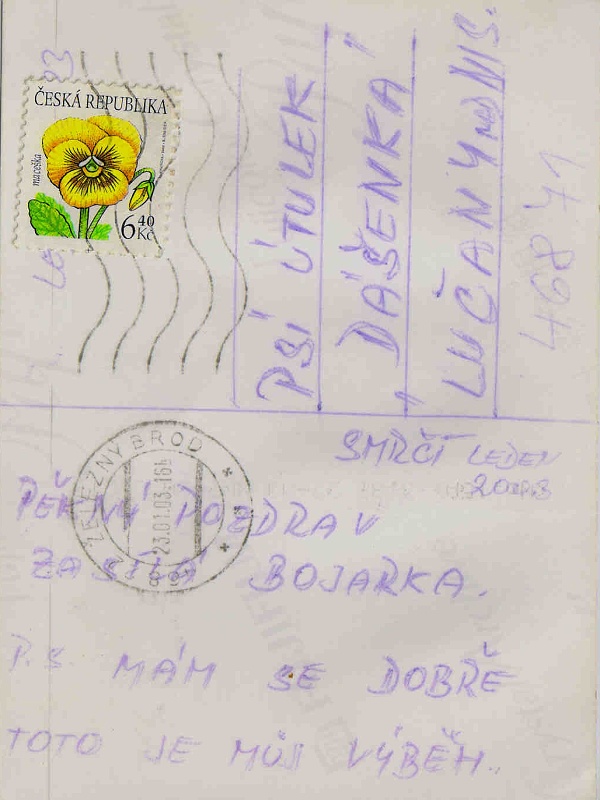 ČESKÁ REPUBLIKA
maceška
6 40 Kč
PSÍ ÚTULEK
"DÁŠENKA"
LUČANY NAD NIS.
468 71
ŽELEZNÝ BROD
23.01.03.16h
SMRČÍ LEDEN
2003
PĚKNÝ POZDRAV
ZASÍLÁ BOJARKA.
P.S. MÁM SE DOBŘE
TOTO JE MŮJ VÝBĚH..